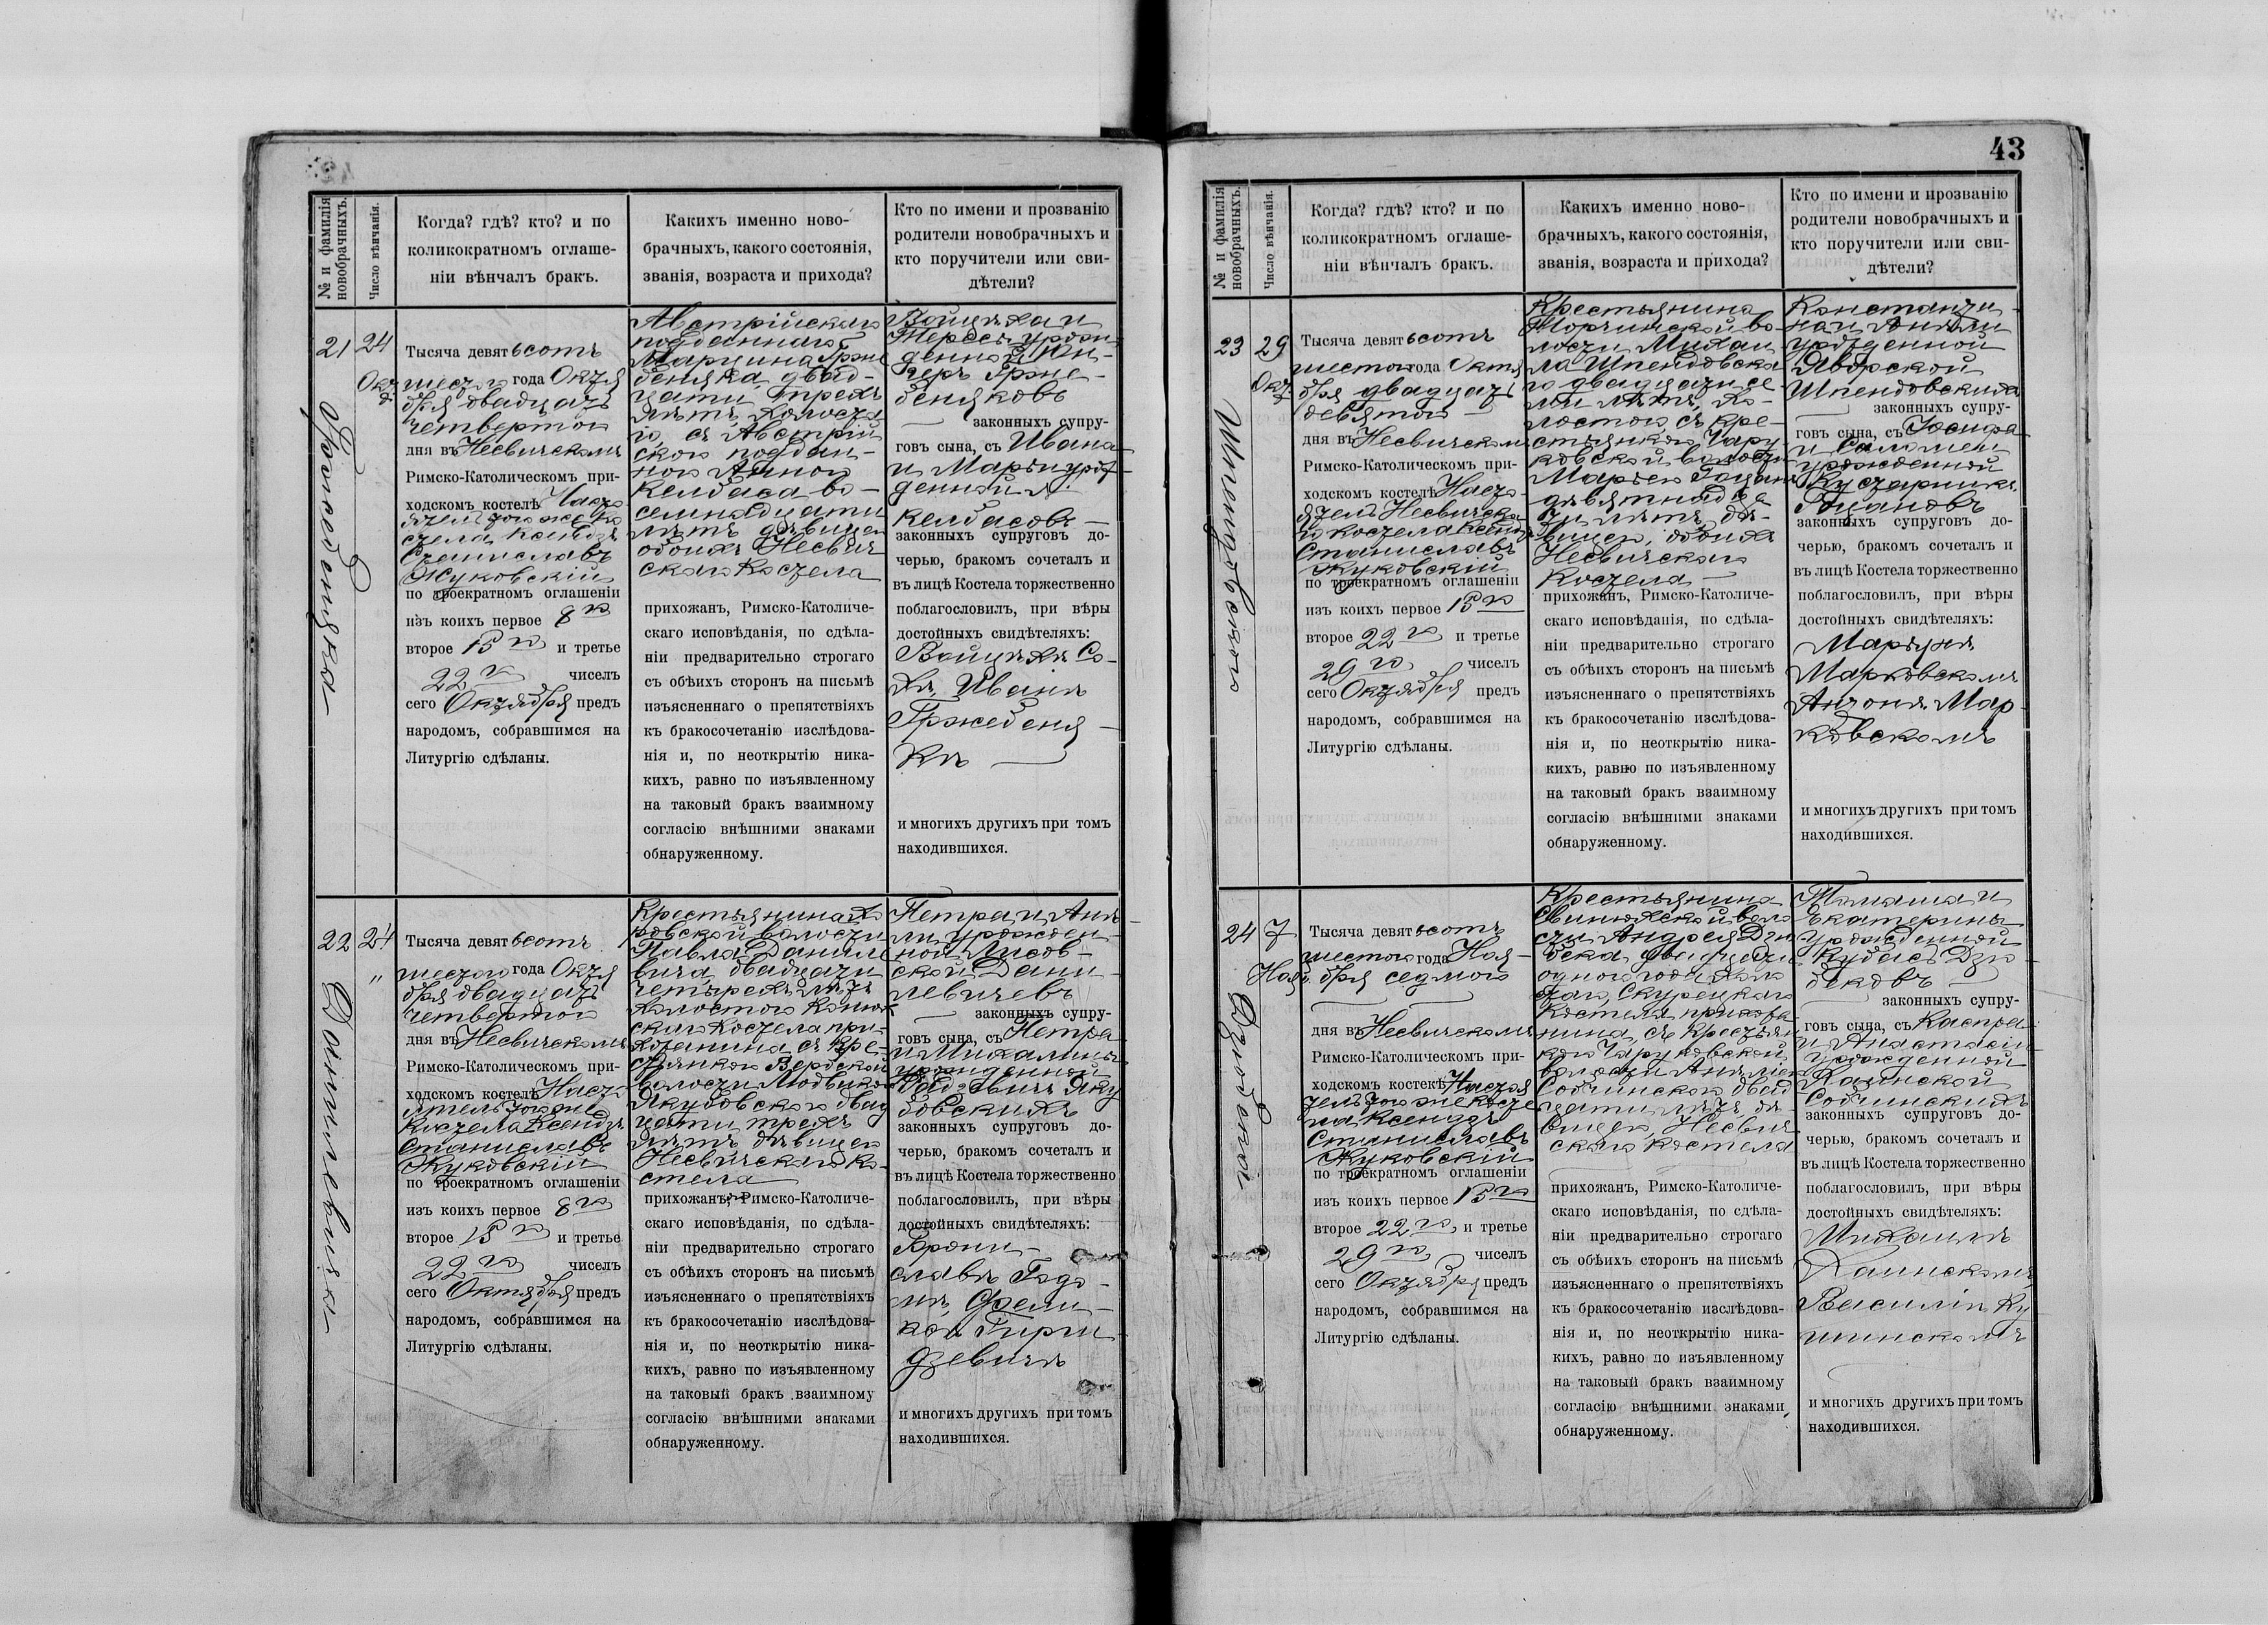 43
№ и фамилія новобрачныхъ.
Число вѣнчанія.
Когда? гдѣ? кто? и по
коликократномъ оглаше-
ніи вѣнчалъ бракъ.
Какихъ именно ново-
брачныхъ, какого состоянія,
званія, возраста и прихода?
Кто по имени и прозванію
родители новобрачныхъ и
кто поручители или сви-
дѣтели?
21
24
Окт.
Тысяча девятьсотъ
шестого года Октя
бря двадцать
четвертого
дня въ Несвичскомъ
Римско-Католическомъ при-
ходскомъ костелѣ Насто
ятель того же ко
стела Ксендзъ
Станиславъ
Жуковскій
по троекратномъ оглашеніи
изъ коихъ первое 8го
второе 15го и третье
22го чиселъ
сего Октября предъ
народомъ, собравшимся на
Литургію сдѣланы.
Австрійскаго
подданнаго
Марцина Грже
беняка двад-
цати трехъ
лѣтъ, холоста
го, съ Австрій
скою поддан-
ною Анною
Келбаса во-
семнадцати
лѣтъ дѣвицею
обоихъ Несвич
скаго Костела
прихожанъ, Римско-Католиче-
скаго исповѣданія, по сдѣла-
ніи предварительно строгаго
съ обѣихъ сторонъ на письмѣ
изъясненнаго о препятствіяхъ
къ бракосочетанію изслѣдова-
нія и, по неоткрытію ника-
кихъ, равно по изъявленному
на таковый бракъ взаимному
согласію внѣшними знаками
обнаруженному.
Войцѣха и
Тересы урож
денной
Грже-
беняковъ
законныхъ супру-
говъ сына, съ Ивана
и Марьи урож-
денной
Келбасовъ
законныхъ супруговъ до-
черью, бракомъ сочеталъ и
въ лицѣ Костела торжественно
поблагословилъ, при вѣры
достойныхъ свидѣтеляхъ:
Войцѣхъ Со-
Иванъ
Гржебеня-
къ
и многихъ другихъ при томъ
находившихся.
22
24
"
Данилевича
Тысяча девятьсотъ
шестого года Октя
бря двадцать
четвертого
дня въ Несвичскомъ
Римско-Католическомъ при-
ходскомъ костелѣ Насто
ятель того же
Костела Ксендзъ
Станиславъ
Жуковскій
по троекратномъ оглашеніи
изъ коихъ первое 8го
второе 15го и третье
22го чиселъ
сего Октября предъ
народомъ, собравшимся на
Литургію сдѣланы.
Крестьянина
волости
Павла Даниле
вича двадцати
четырехъ лѣтъ
холостого
скаго Костела при-
хожанина съ кре-
стьянкою Вербской
волости Людвикою
Якубовскою двад
цати трехъ
лѣтъ дѣвицею
Несвичскаго ко-
стела
прихожанъ, Римско-Католиче-
скаго исповѣданія, по сдѣла-
ніи предварительно строгаго
съ обѣихъ сторонъ на письмѣ
изъясненнаго о препятствіяхъ
къ бракосочетанію изслѣдова-
нія и, по неоткрытію ника-
кихъ, равно по изъявленному
на таковый бракъ взаимному
согласію внѣшними знаками
обнаруженному.
Петра и Анѣ-
ли урожден-
ной Лисов-
ской Дани-
левичевъ
законныхъ супру-
говъ сына, съ Петра
и Михалины
урожденной
Яку
бовскихъ
законныхъ супруговъ до-
черью, бракомъ сочеталъ и
въ лицѣ Костела торжественно
поблагословилъ, при вѣры
достойныхъ свидѣтеляхъ:
Брони-
славъ
и многихъ другихъ при томъ
находившихся.
№ и фамилія новобрачныхъ.
Число вѣнчанія.
Когда? гдѣ? кто? и по
коликократномъ оглаше-
ніи вѣнчалъ бракъ.
Какихъ именно ново-
брачныхъ, какого состоянія,
званія, возраста и прихода?
Кто по имени и прозванію
родители новобрачныхъ и
кто поручители или сви-
дѣтели?
23
29
Окт.
Шпендовского
Тысяча девятьсотъ
шестого года Октя
бря двадцать
девятого
дня въ Несвичскомъ
Римско-Католическомъ при-
ходскомъ костелѣ Насто-
ятель Несвичска
го костела Ксендзъ
Станиславъ
Жуковскій
по троекратномъ оглашеніи
изъ коихъ первое 15го
второе 22го и третье
29го чиселъ
сего Октября предъ
народомъ, собравшимся на
Литургію сдѣланы.
Крестьянина
Торчинской во-
лости Михаи
ла Шпендовска
го двадцати се
ми лѣтъ, хо-
лостого, съ кре-
стьянкою Чару-
ковской волости
Марьею Гоцанъ
девятнадца
ти лѣтъ, дѣ-
вицею, обоихъ
Несвичскаго
Костела
прихожанъ, Римско-Католиче-
скаго исповѣданія, по сдѣла-
ніи предварительно строгаго
съ обѣихъ сторонъ на письмѣ
изъясненнаго о препятствіяхъ
къ бракосочетанію изслѣдова-
нія и, по неоткрытію ника-
кихъ, равно по изъявленному
на таковый бракъ взаимному
согласію внѣшними знаками
обнаруженному.
Константи-
на и Анѣли
урожденной
Яворской
Шпендовскихъ
законныхъ супру-
говъ сына, съ Іосифа
и Саломеи
урожденной
Гоцановъ
законныхъ супруговъ до-
черью, бракомъ сочеталъ и
въ лицѣ Костела торжественно
поблагословилъ, при вѣры
достойныхъ свидѣтеляхъ:
Марковскомъ
Антонѣ Мар-
ковскомъ
и многихъ другихъ при томъ
находившихся.
24
7
Нояб.
Тысяча девятьсотъ
шестого года Ноя-
бря седмого
дня въ Несвичскомъ
Римско-Католическомъ при-
ходскомъ костелѣ Настоя
тель того же косте
ла Ксендзъ
Станиславъ
Жуковскій
по троекратномъ оглашеніи
изъ коихъ первое 15го
второе 22го и третье
29го чиселъ
сего Октября предъ
народомъ, собравшимся на
Литургію сдѣланы.
Крестьянина
Свинюхской воло
сти Андрея Дзю
бека двадцати
одного года холо
стого, Скурецкаго
Костела прихожа
нина, съ крестьян
кою Чаруковской
волости Анѣлею
Собчинскою двад
цати лѣтъ дѣ-
вицею, Несвич
скаго костела
прихожанъ, Римско-Католиче-
скаго исповѣданія, по сдѣла-
ніи предварительно строгаго
съ обѣихъ сторонъ на письмѣ
изъясненнаго о препятствіяхъ
къ бракосочетанію изслѣдова-
нія и, по неоткрытію ника-
кихъ, равно по изъявленному
на таковый бракъ взаимному
согласію внѣшними знаками
обнаруженному.
Томаша и
Екатерины
урожденной
Кубась Дзю-
бековъ
законныхъ супру-
говъ сына, съ Каспра
и Анастасіи
урожденной
Собчинскихъ
законныхъ супруговъ до-
черью, бракомъ сочеталъ и
въ лицѣ Костела торжественно
поблагословилъ, при вѣры
достойныхъ свидѣтеляхъ:
Михаилъ
Василій Ку
шинскомъ
и многихъ другихъ при томъ
находившихся.